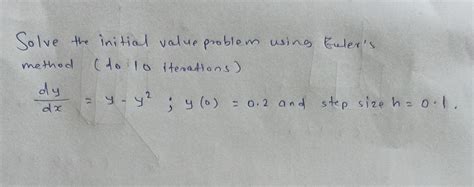 Solve the initial value problem using Euler's
method (do 10 iterations)
dy/dx = y - y² ; y(0) = 0.2 and step size h = 0.1.